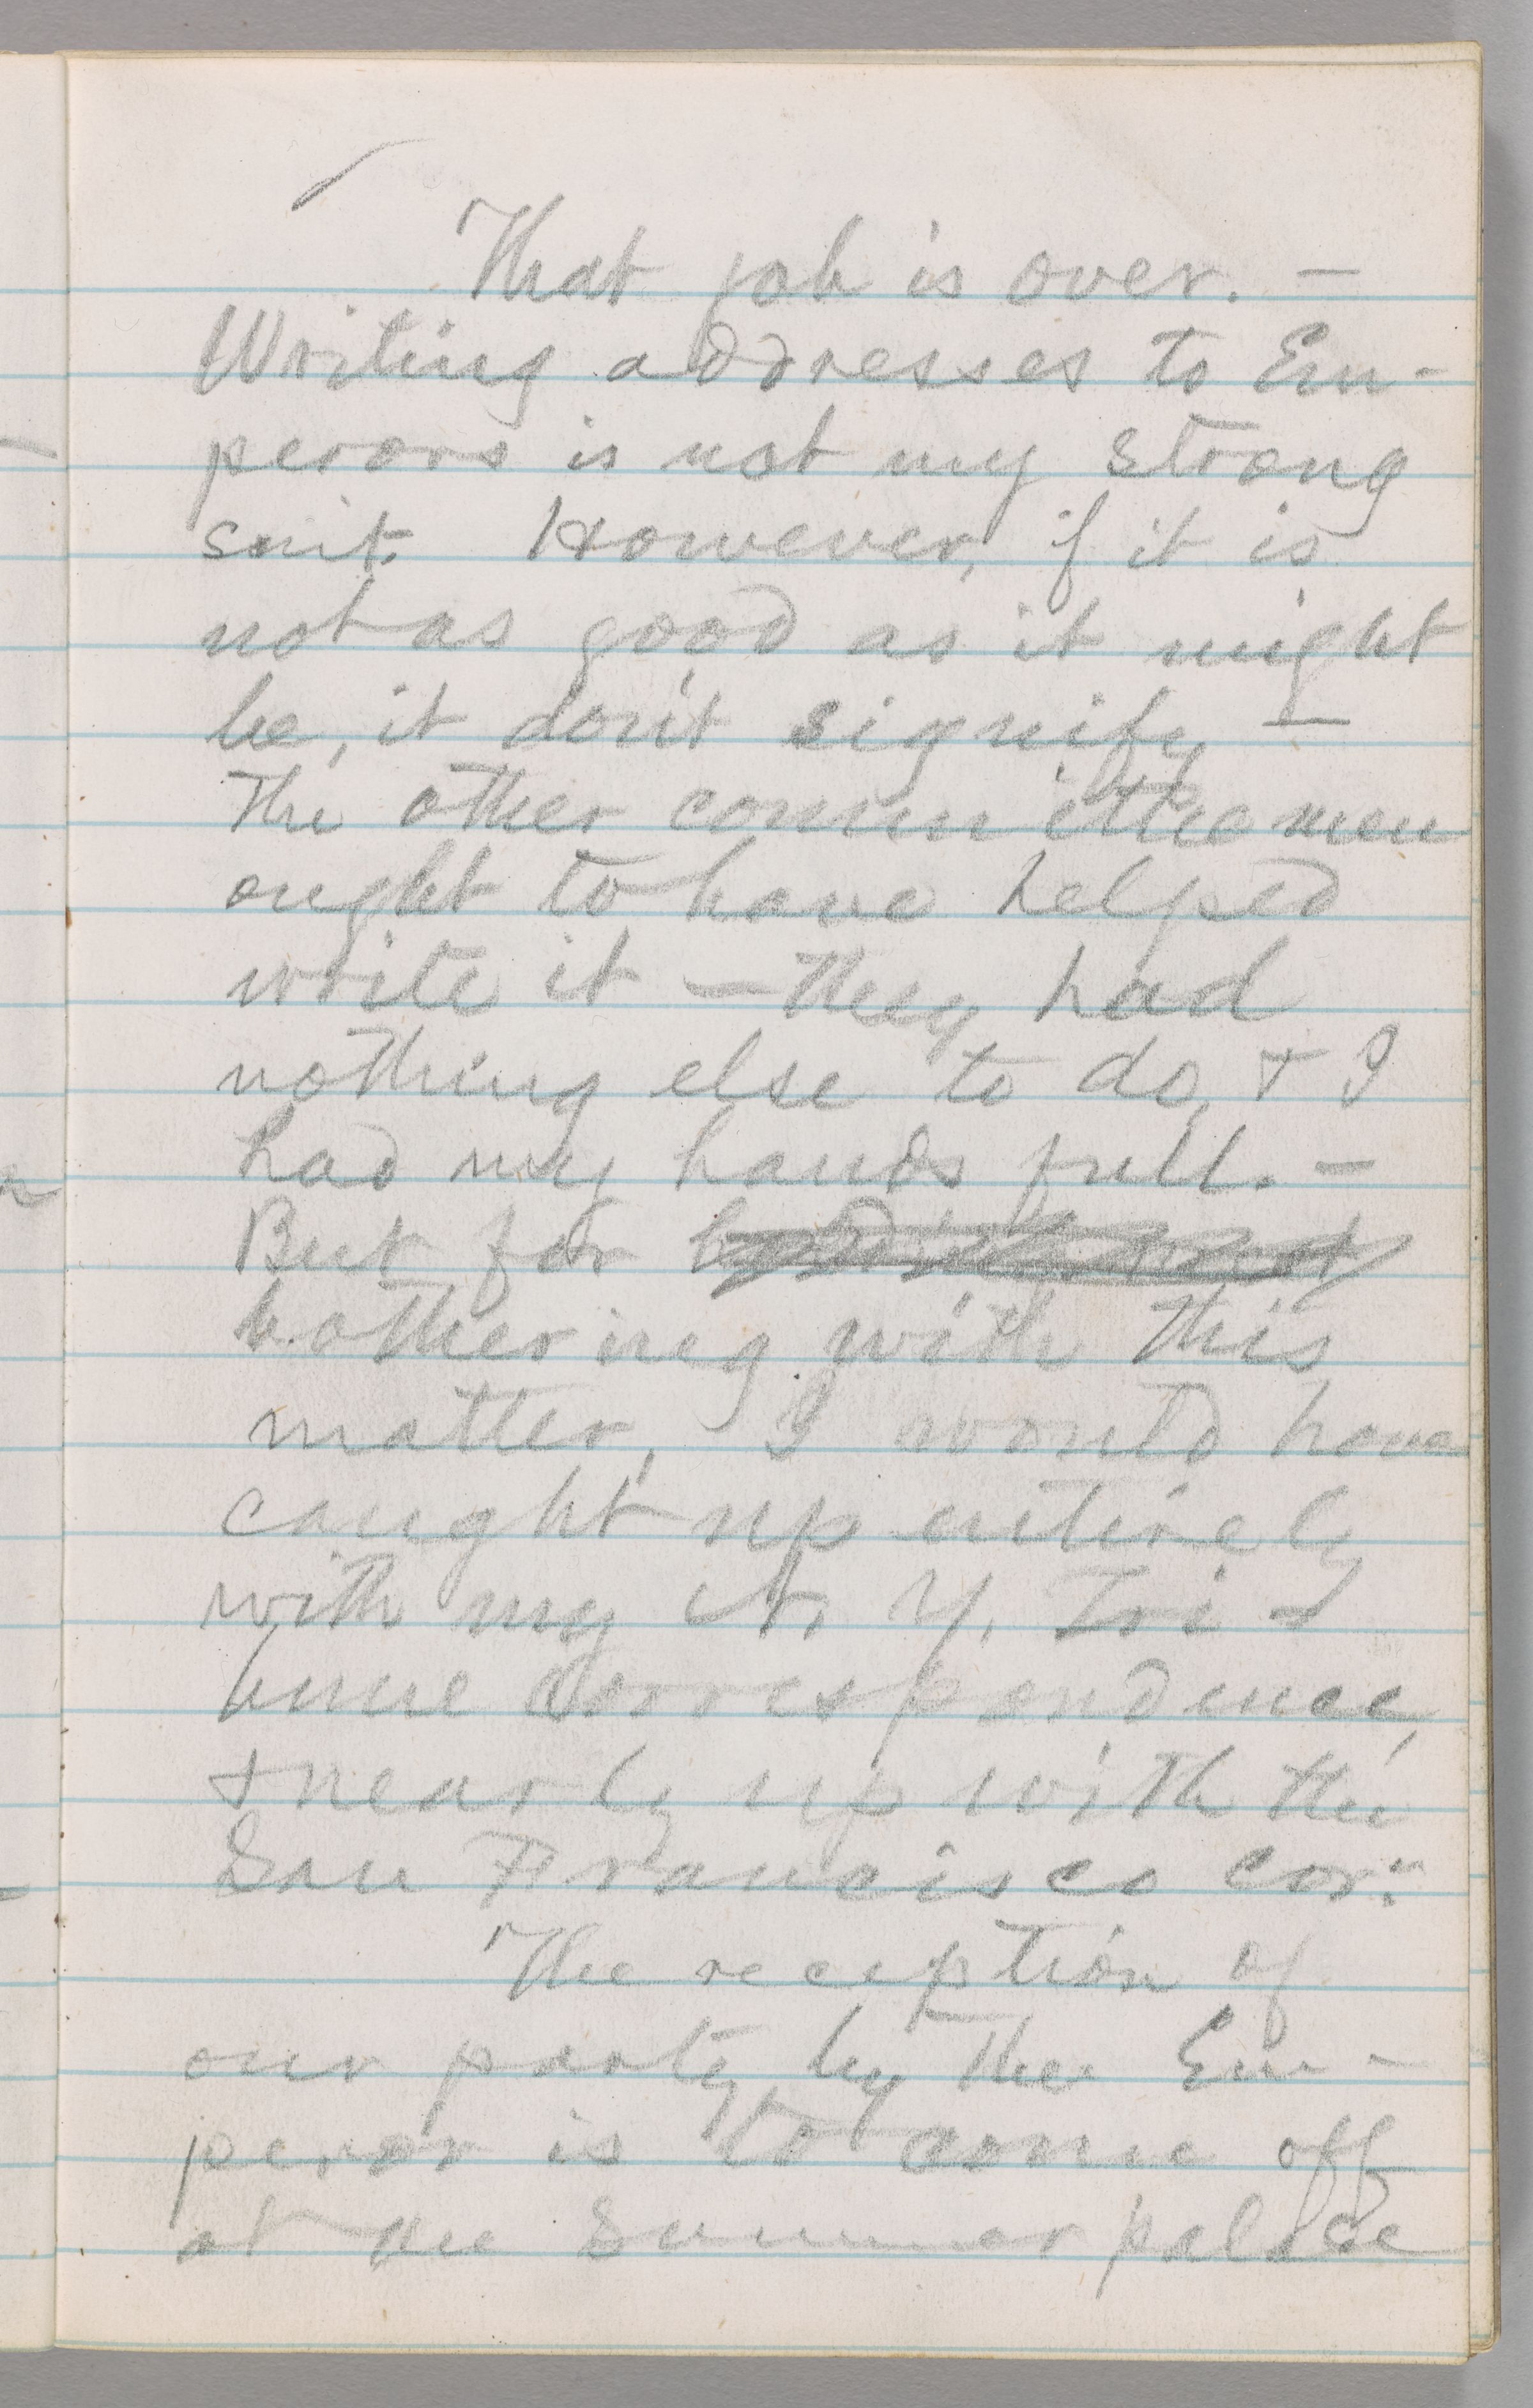 That job is over. —
Writing addresses to Em-
perors is not my strong
suit. However, if it is
not as good as it might
be, it don't signify —
the other committee men
ought to have helped
write it — they had
nothing else to do, & I
had my hands full. —
But for
bothering with this
matter, I would have
caught up entirely
with my N. Y. Tri-
bune Correspondence,
& nearly up with the
San Francisco cor.
The reception of
our party by the Em-
peror is to come off
at the Summer palace